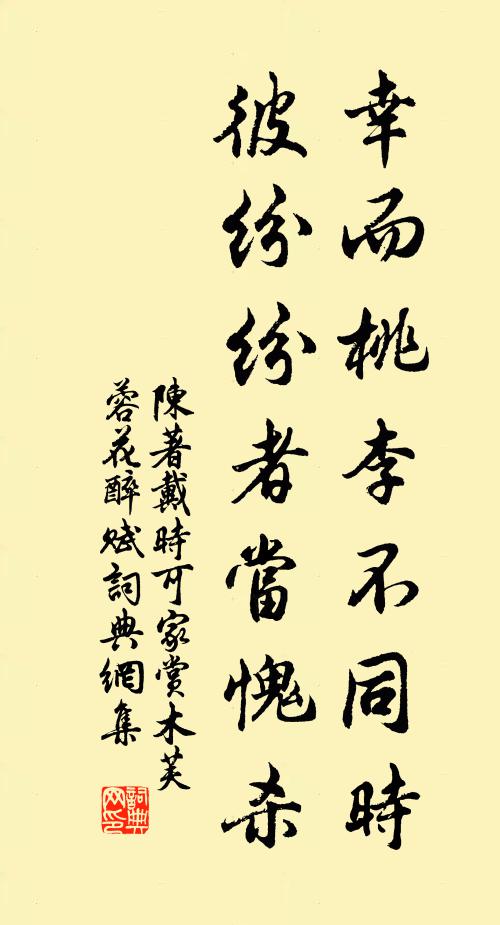 幸而桃李不同時
彼紛紛者當愧杀
陳著戴時可家賞木芙
蓉花醉賦詞典網集
詞典
网印